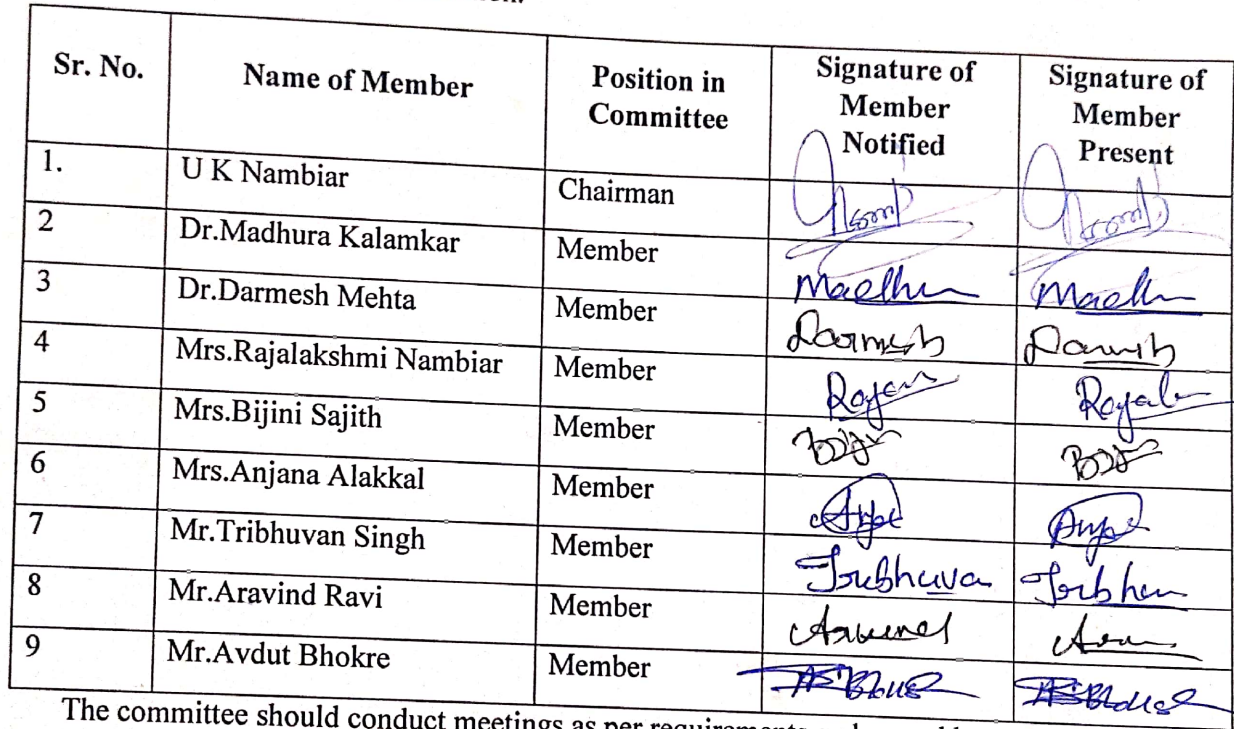 Sr. No. Name of Member Position in Committee Signature of Member Notified Signature of Member Present
1. U K Nambiar Chairman
2 Dr.Madhura Kalamkar Member
3 Dr.Darmesh Mehta Member
4 Mrs.Rajalakshmi Nambiar Member
5 Mrs.Bijini Sajith Member
6 Mrs.Anjana Alakkal Member
7 Mr.Tribhuvan Singh Member
8 Mr.Aravind Ravi Member
9 Mr.Avdut Bhokre Member
The committee should conduct meetings as per requirements